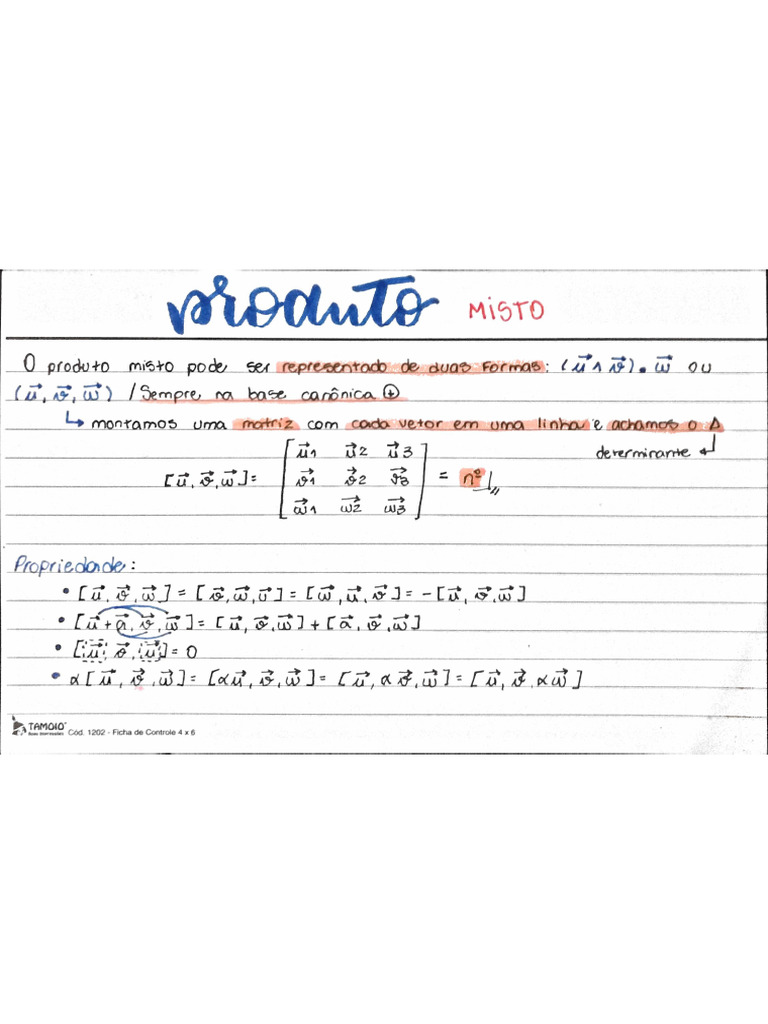 produto MISTO
O produto misto pode ser representado de duas formas: (u⃗ ∧ v⃗) • w⃗ ou
(u⃗, v⃗, w⃗) / Sempre na base canônica ⊕
↳ montamos uma matriz com cada vetor em uma linha e achamos o Δ
determinante ↵
[u⃗, v⃗, w⃗] = [u⃗1 u⃗2 u⃗3
v⃗1 v⃗2 v⃗3
w⃗1 w⃗2 w⃗3] = nº
Propriedade:
• [u⃗, v⃗, w⃗] = [v⃗, w⃗, u⃗] = [w⃗, u⃗, v⃗] = -[u⃗, v⃗, w⃗]
• [u⃗ + a⃗, v⃗, w⃗] = [u⃗, v⃗, w⃗] + [a⃗, v⃗, w⃗]
• [u⃗, v⃗, u⃗] = 0
• α[u⃗, v⃗, w⃗] = [αu⃗, v⃗, w⃗] = [u⃗, αv⃗, w⃗] = [u⃗, v⃗, αw⃗]
TAMOIO Cód. 1202 - Ficha de Controle 4 x 6